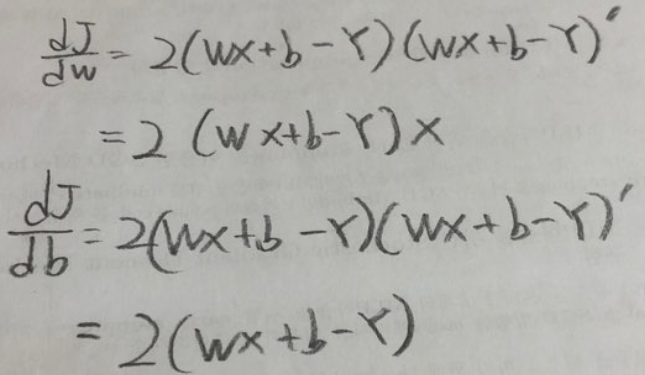 dJ/dw = 2(wx+b-Y)(wx+b-Y)'
= 2 (wx+b-Y)x
dJ/db = 2(wx+b-Y)(wx+b-Y)'
= 2(wx+b-Y)